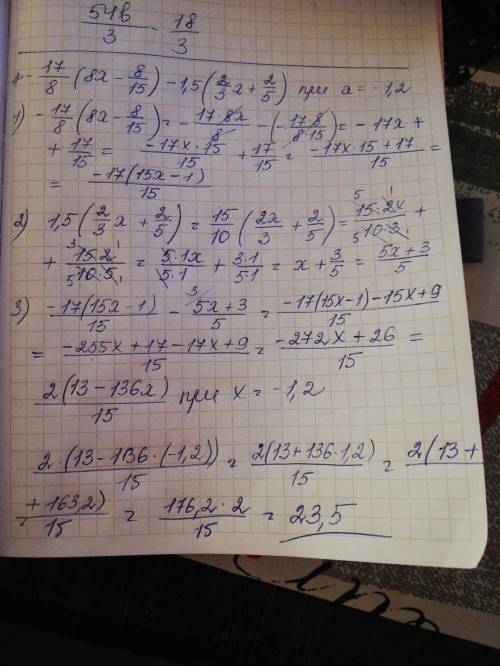 54b/3 - 18/3
*-17/8 (8x - 8/15) - 1,5 (2/3 x + 2/5) при x = -1,2
1) -17/8 (8x - 8/15) = -17·8x/8 - (-17·8/8·15) = -17x +
+ 17/15 = -17x·15/15 + 17/15 = -17x·15+17/15 =
= -17(15x-1)/15
2) 1,5 (2/3 x + 2/5) = 15/10 (2x/3 + 2/5) = 15·2x/10·3 +
+ 15·2/10·5 = 5·1x/5·1 + 3·1/5·1 = x + 3/5 = 5x+3/5
3) -17(15x-1)/15 - 5x+3/5 = -17(15x-1)-15x+9/15
= -255x+17-17x+9/15 = -272x+26/15 =
2(13-136x)/15 при x = -1,2
2·(13-136·(-1,2))/15 = 2(13+136·1,2)/15 = 2(13+
+163,2)/15 = 176,2·2/15 = 23,5